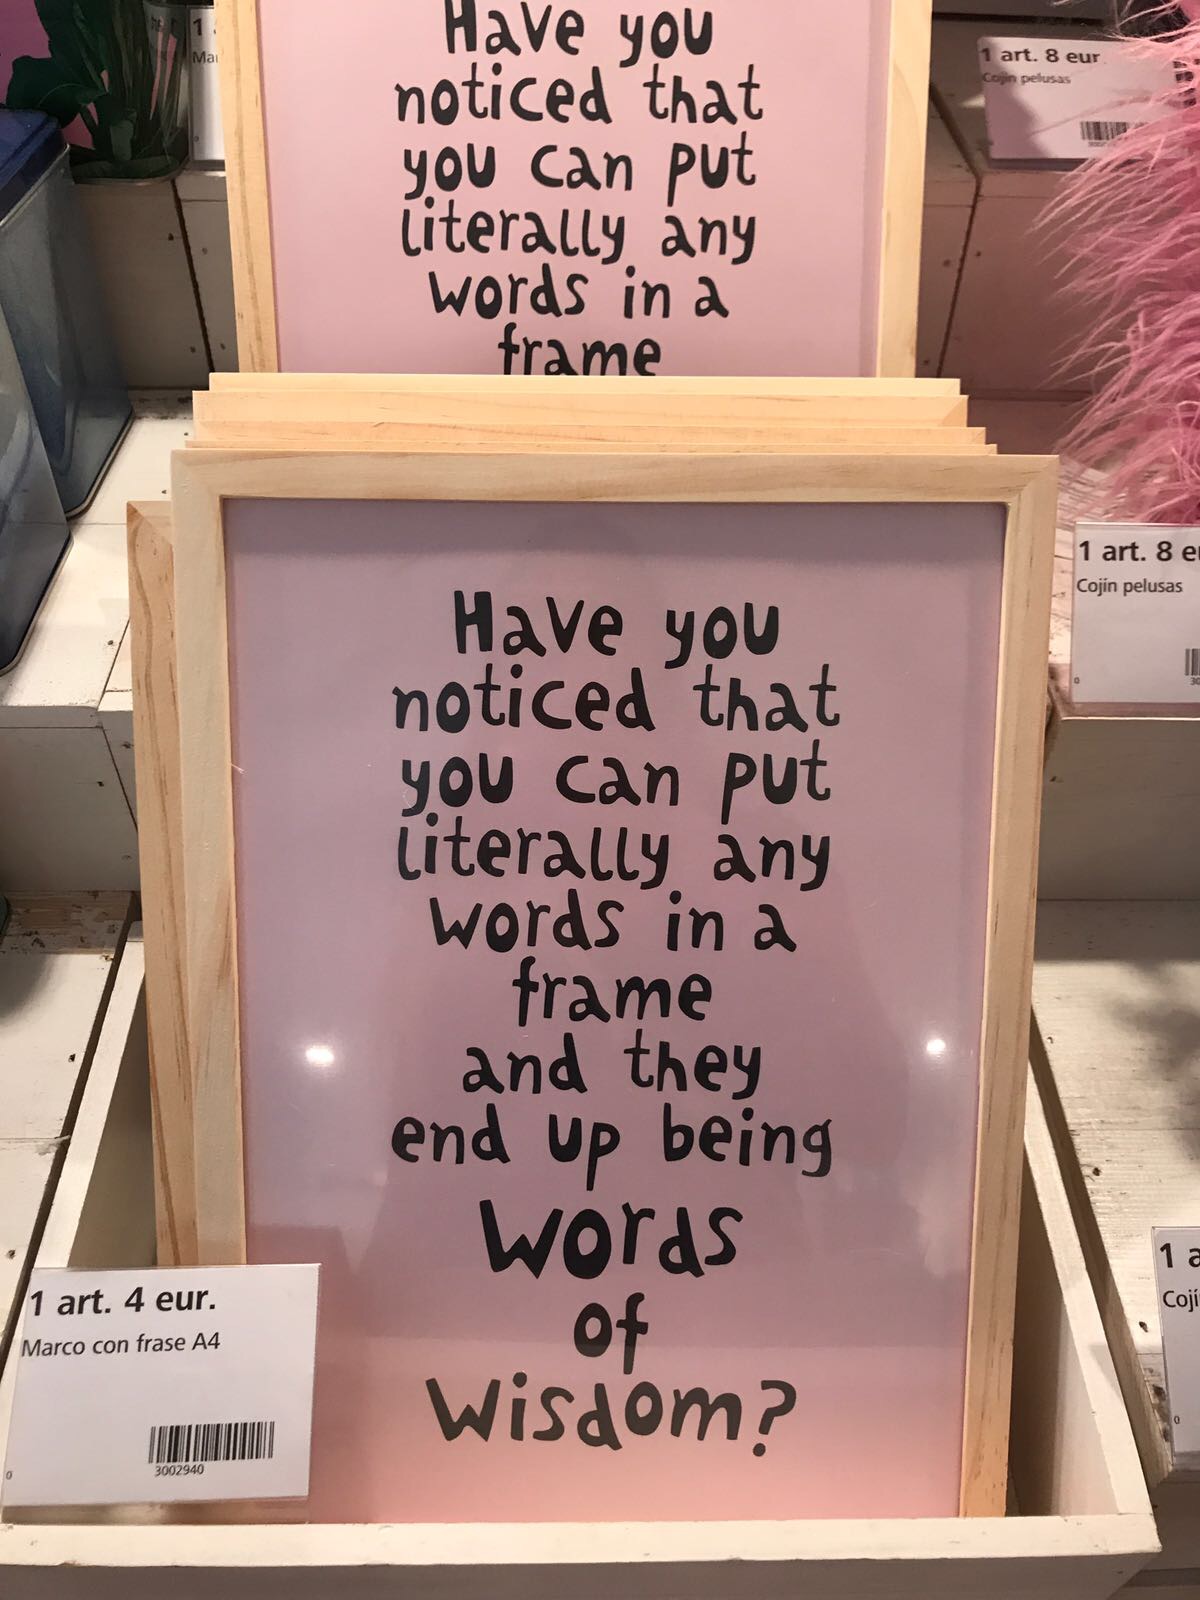 Have you
noticed that
you can put
literally any
words in a
frame
1 art. 8 eur.
Cojín pelusas
1 art. 8 e
Cojín pelusas
Have you
noticed that
you can put
literally any
words in a
frame
and they
end up being
words
of
wisdom?
1 art. 4 eur.
Marco con frase A4
3002940
0
1 a
Cojí
0